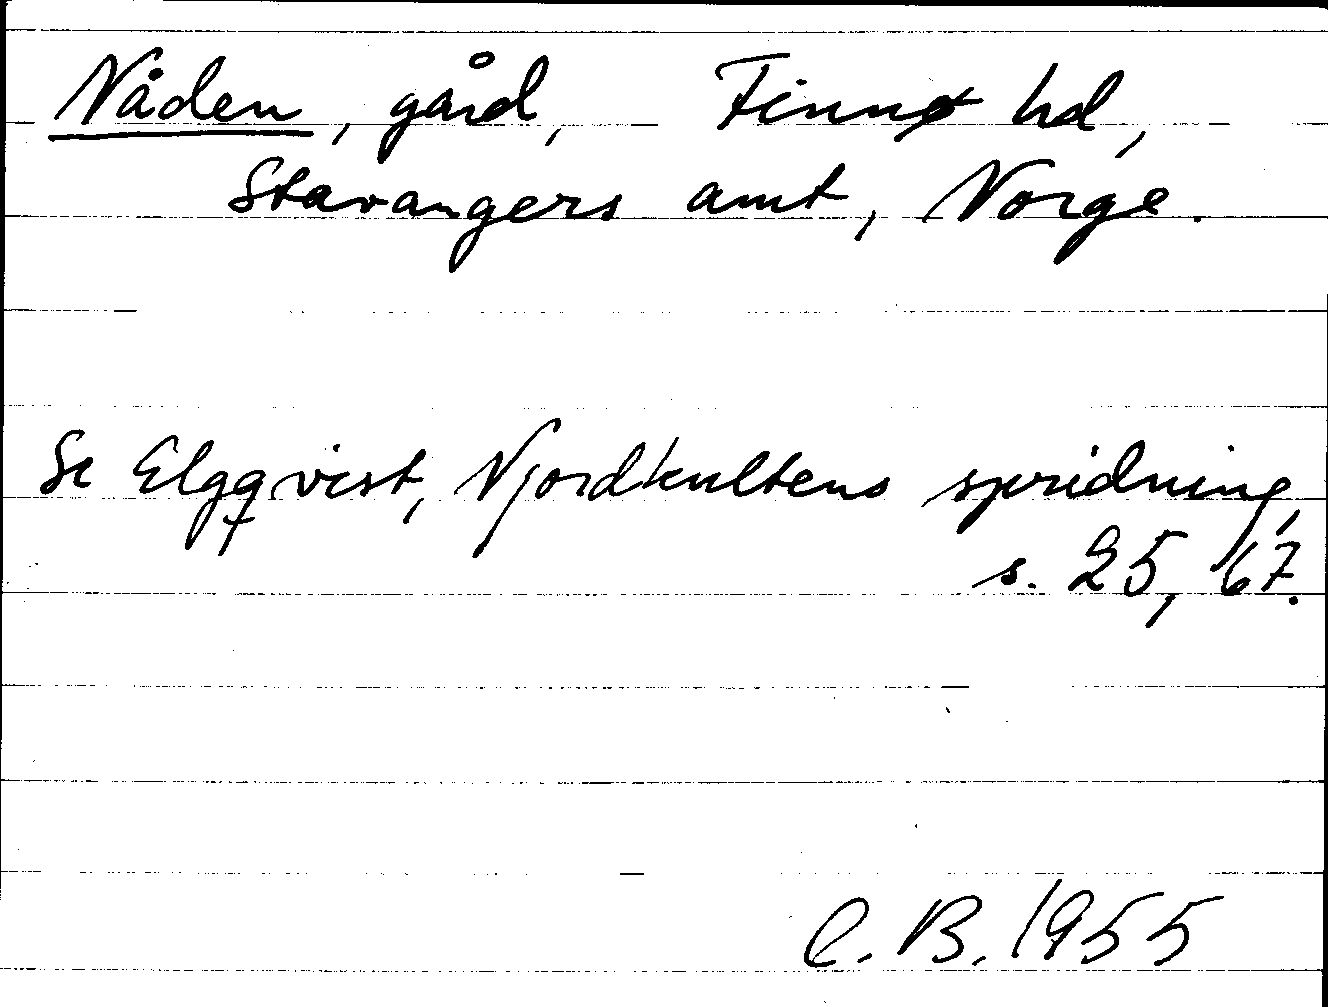 Nåden, gård, Finnø hd,
Stavangers amt, Norge.
Se Elgqvist, Njordkultens spridning,
s. 25, 67.
C. B. 1955